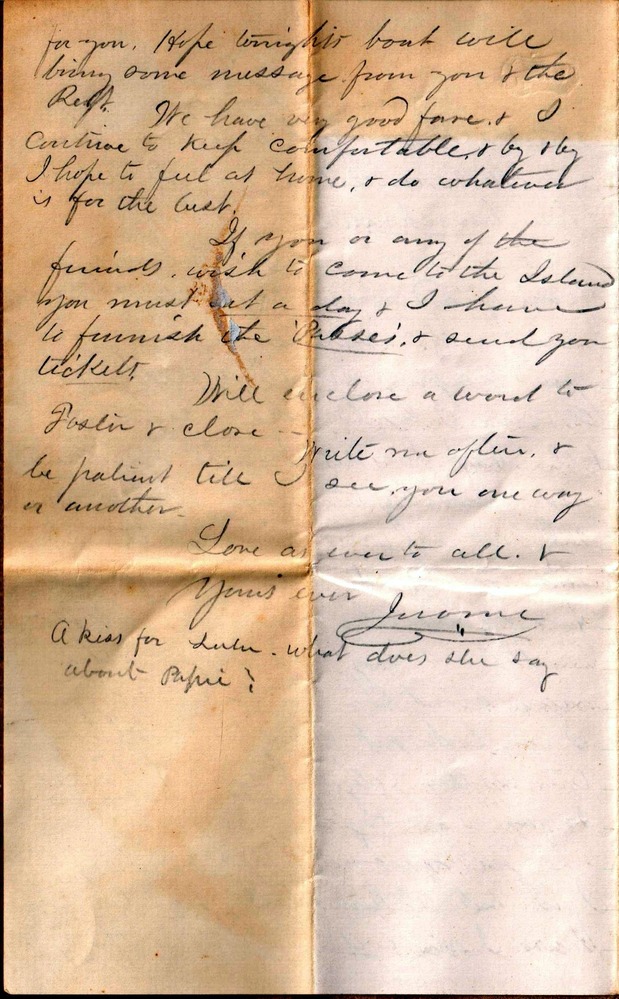 for you. Hope tonight's boat will
bring some message from you & the
Rest. We have very good fare. & I
contrive to keep comfortable, & by & by
I hope to feel at home, & do whatever
is for the best.
If you or any of the
friends, wish to come to the Island
you must set a day & I have
to furnish the 'Passes', & send you
tickets.
Will enclose a word to
Foster & close —
Write me often, &
be patient till I see you one way
or another.
Love as ever to all. &
Yours ever
Jerome
A kiss for Lulu - what does she say
about Papie?